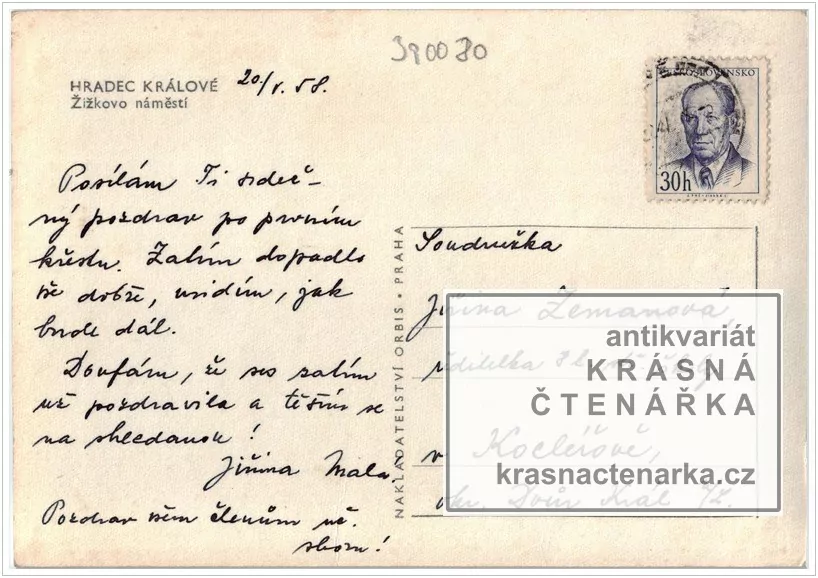 390030
HRADEC KRÁLOVÉ 20/V. 58.
Žižkovo náměstí
ČESKOSLOVENSKO
30h
Posílám Ti srdeč-
ný pozdrav po prvním
křestu. Zatím dopadlo
vše dobře, uvidím, jak
bude dál.
Doufám, že ses zatím
už pozdravila a těším se
na shledanou!
Jiřina Malá.
Pozdrav všem členům uč.
sboru!
NAKLADATELSTVÍ ORBIS • PRAHA
Soudružka
Jiřina Zemanová,
ředitelka školy
v Kocléřově,
okr. Dvůr Král. n/L.
antikvariát
KRÁSNÁ
ČTENÁŘKA
krasnactenarka.cz